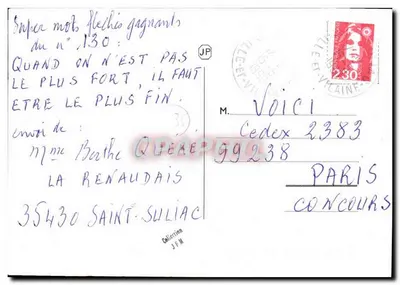 Super mots fléchés gagnants
du n° 130 :
QUAND ON N'EST PAS
LE PLUS FORT, IL FAUT
ETRE LE PLUS FIN.
envoi de :
Mme Berthe QUÉRÉ
LA RENAUDAIS
35430 SAINT-SULIAC
JP
Collection
J P M
2,30
ILLE ET VILAINE
M. VOICI
Cedex 2383
99238
PARIS
CONCOURS